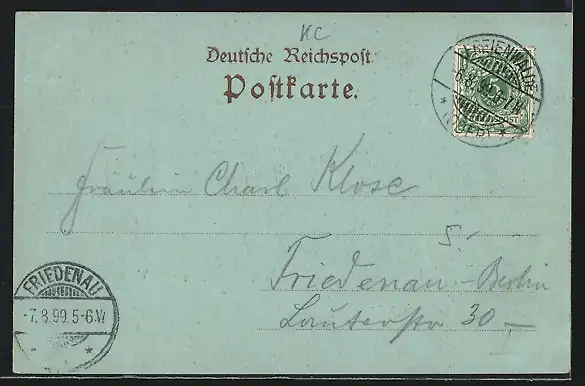 KC
Deutsche Reichspost.
Postkarte.
FREIENWALDE
6.8.99. 6-7.N.
* (ODER) *
Fräulein Charl. Klose
Friedenau-Berlin
Lauterstr 30 I
FRIEDENAU
-7.8.99. 5-6.V.
* *